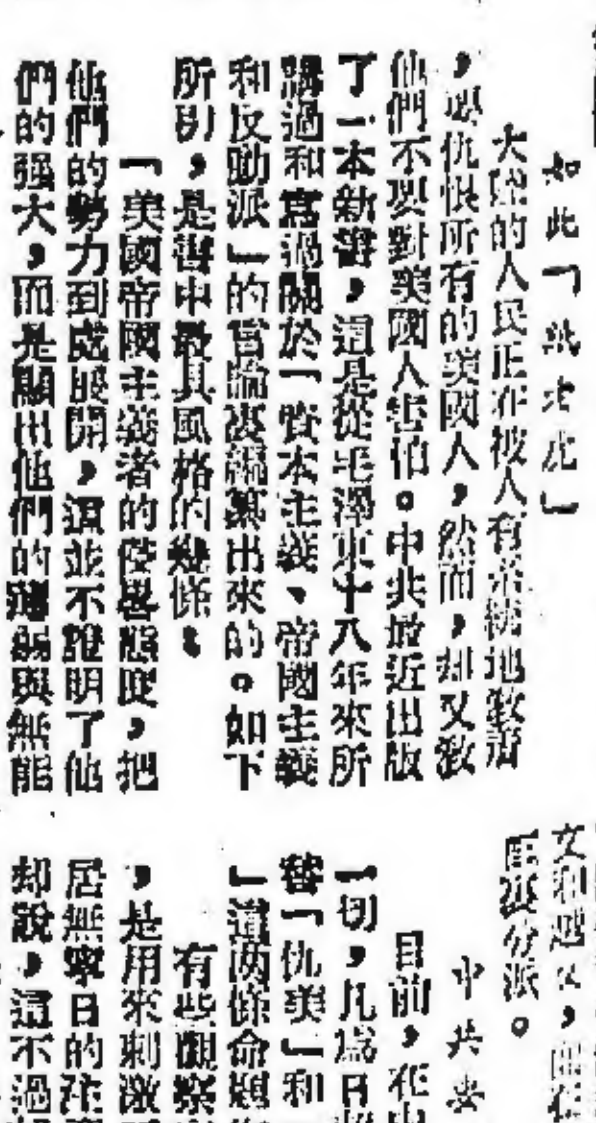 如此「紙老虎」
大陸的人民正在被人有系統地教育
，要仇恨所有的美國人，然而，却又教
他們不要對美國人害怕。中共最近出版
了一本新書，這是從毛澤東十八年來所
講過和寫過關於「資本主義、帝國主義
和反動派」的言論裏編纂出來的。如下
所引，是書中最具風格的幾條：
「美國帝國主義者的侵畧態度，把
他們的勢力到處展開，這並不證明了他
們的强大，而是顯出他們的薄弱與無能
文和
分派。
中共
目前，在中
一切，凡爲日
替「仇美」和
」這兩條命題
有些觀察
，是用來刺激
居無寧日的注
却說，這不過